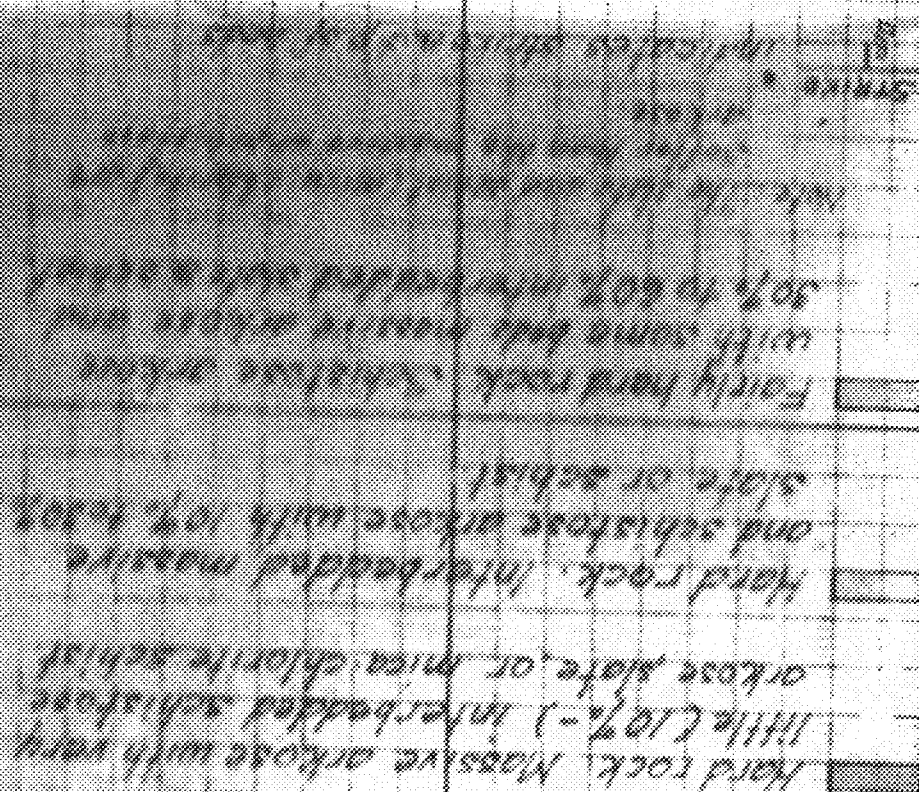 Hard rock. Massive arkose with very
little (10%-) interbedded schistose
arkose, slate, or mica chlorite schist
Hard rock. Interbedded massive
and schistose arkose with 10% to 30%
slate or schist
Fairly hard rock. Schistose arkose
with some beds massive arkose and
30% to 60% interbedded slate & schist
Note - The slate and schist
softer than the massive
arkose
Strike
indicates